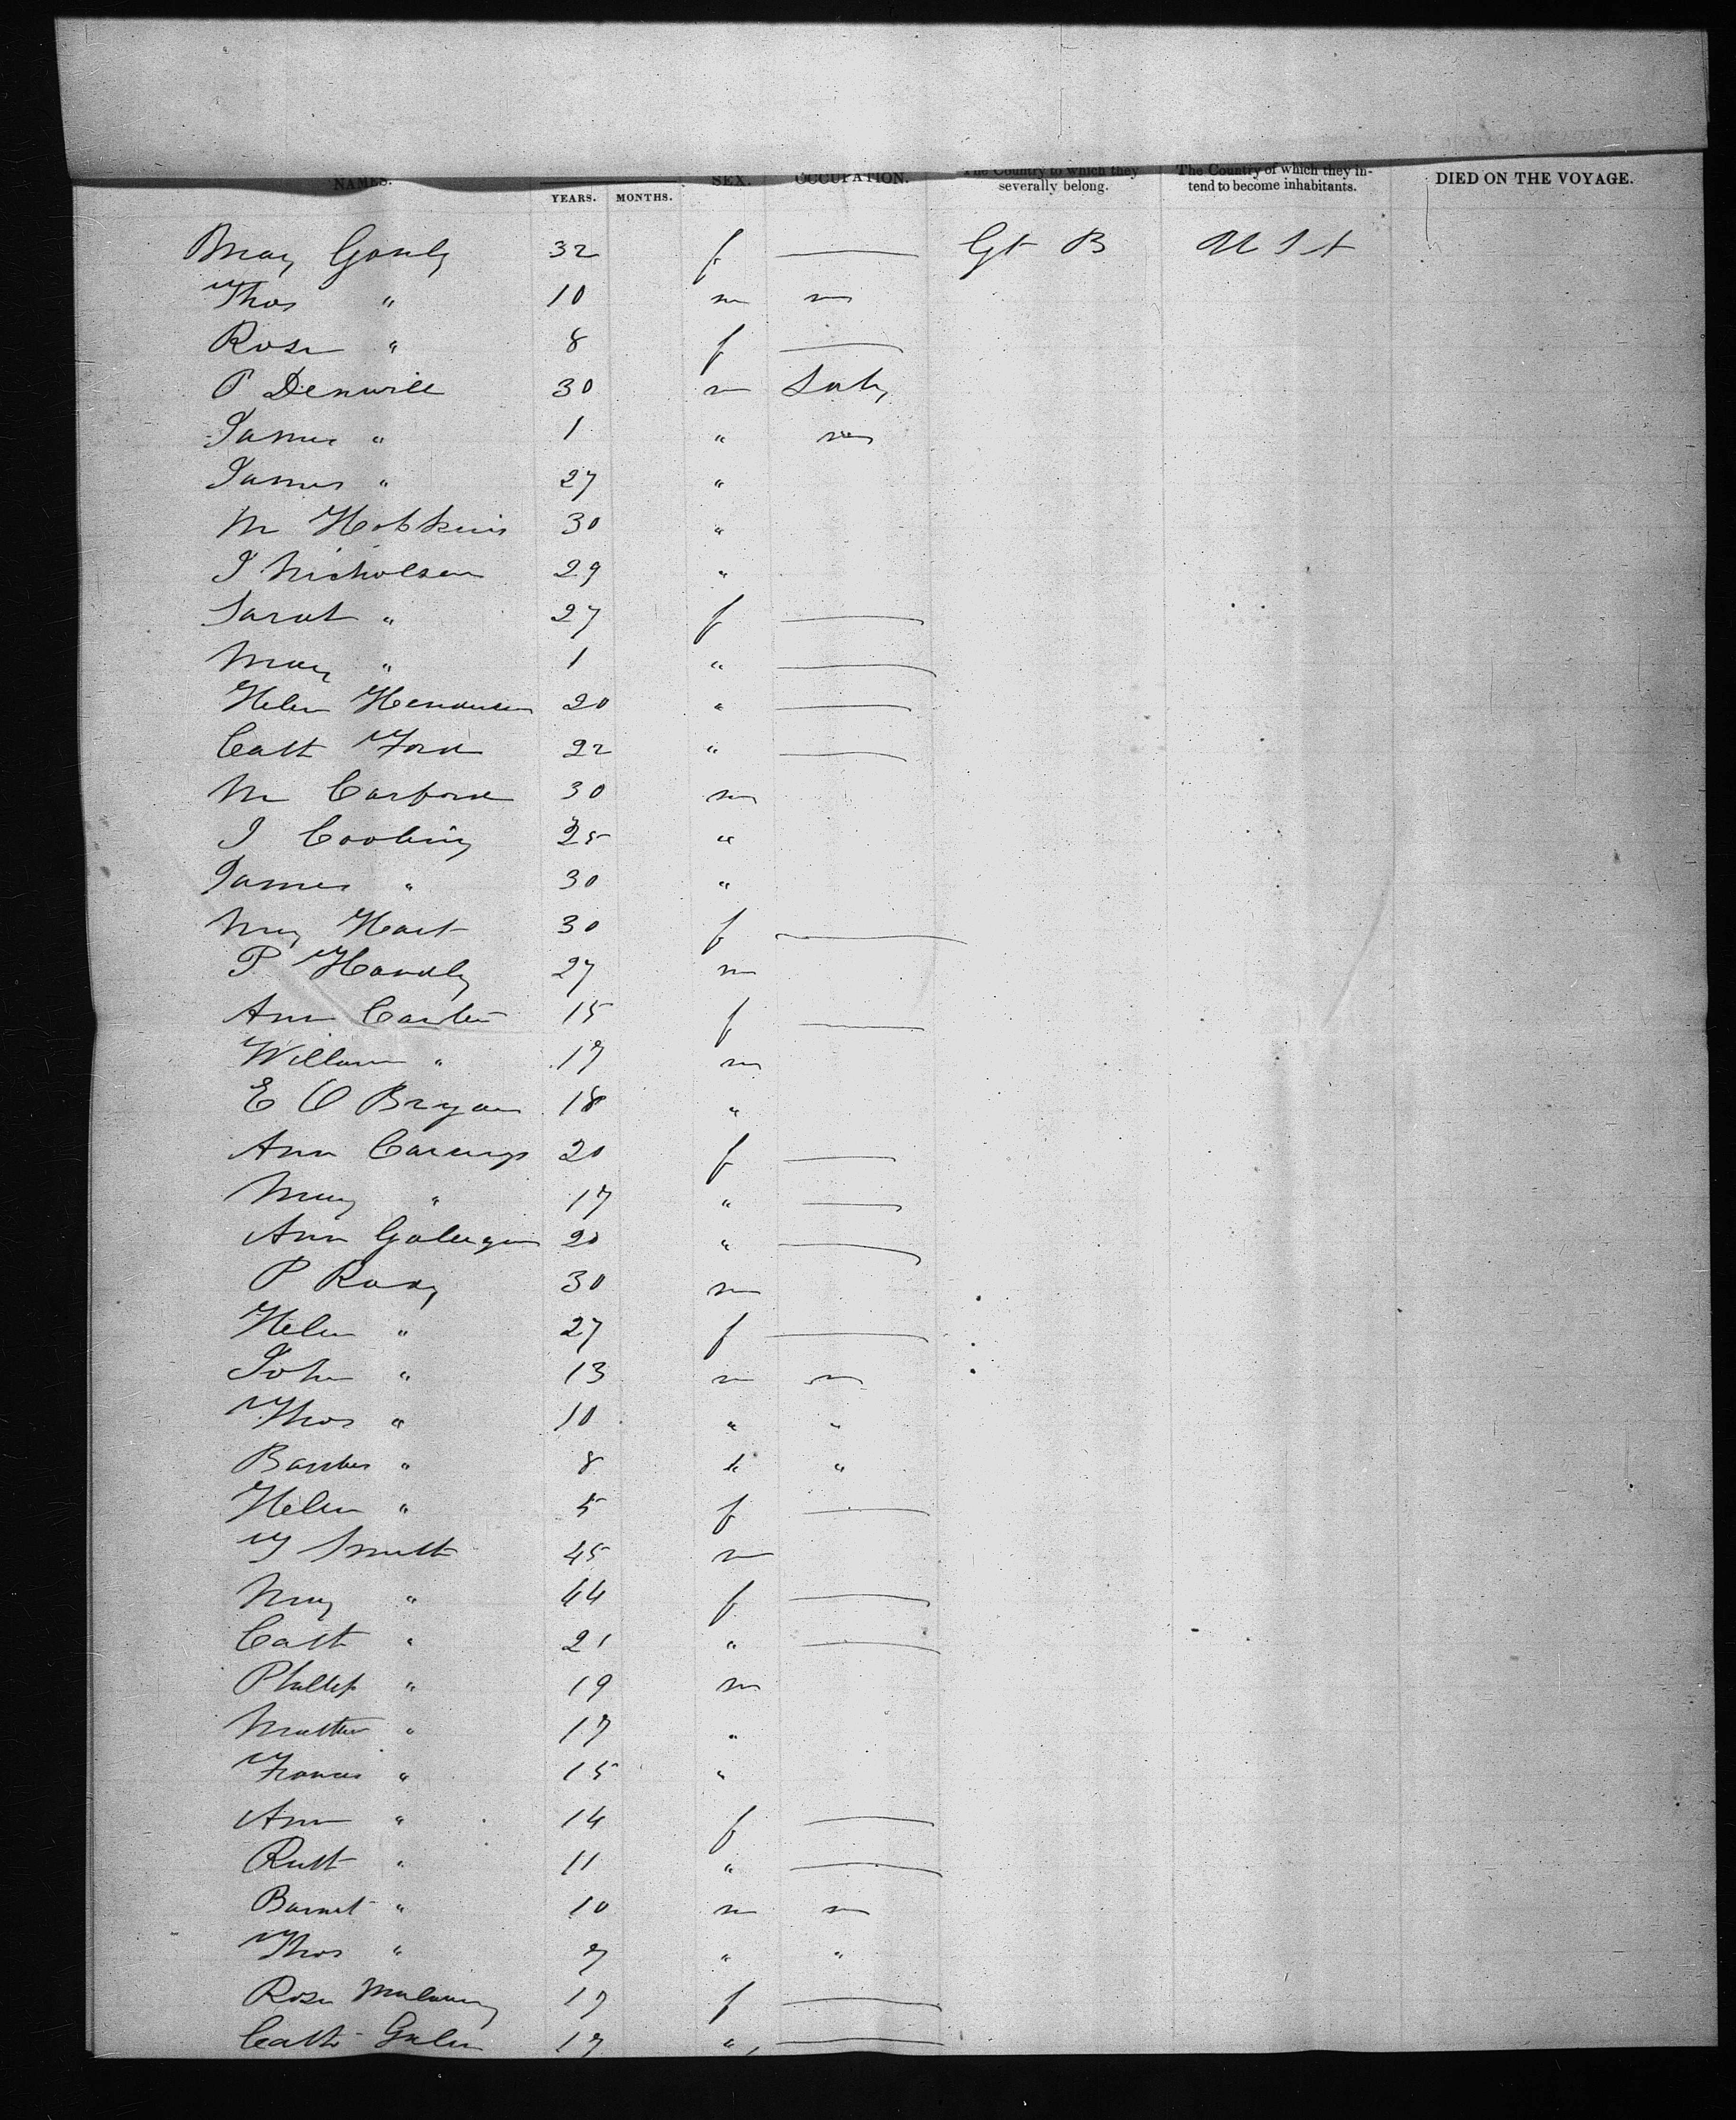 NAMES. YEARS. MONTHS. SEX. OCCUPATION. The Country to which they severally belong. The Country of which they intend to become inhabitants. DIED ON THE VOYAGE.
Mary Gonly 32 f — Gt B U St
Thos " 10 m m
Rose " 8 f —
P Denville 30 m Lab
James " 1 " m
James " 27 "
M Hobkins 30 "
J Nicholsen 29 "
Sarah " 27 f —
Mary " 1 " —
Helen 20 " —
Cath Ford 22 " —
M Carford 30 m
J 25 "
James " 30 "
Mary Hart 30 f —
P Handly 27 m
Ann Carter 15 f —
William " 17 m
E O Bryan 18 "
Ann 20 f —
Mary " 17 " —
Ann 20 " —
P Rody 30 m
Helen " 27 f —
John " 13 m m
Thos " 10 " "
" 8 "
Helen " 5 f —
T Smith 45 m
Mary " 44 f —
Cath " 21 " —
Phillip " 19 m
Mathew " 17 "
Francis " 15 "
Ann " 14 f —
Ruth " 11 " —
Barnet " 10 m m
Thos " 7 " "
Rose 17 f —
Cath 17 " —